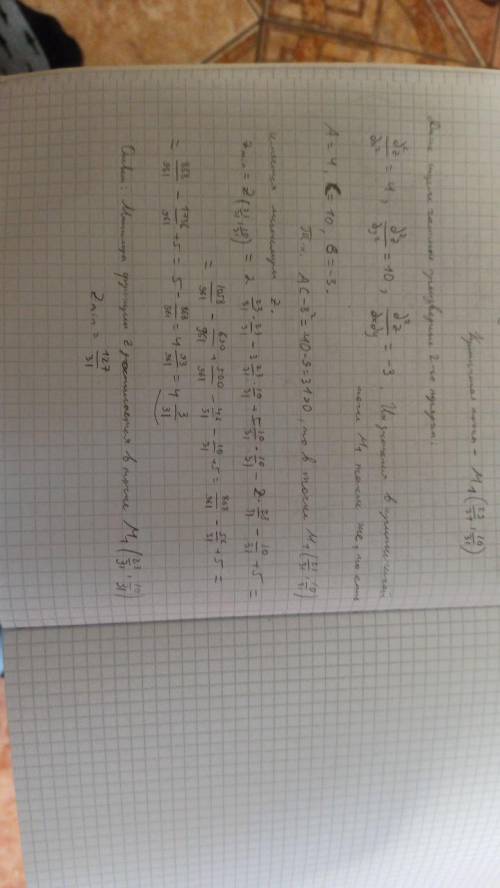 Критическая точка – M₁(23/31; 10/31)
Далее ищем частные производные 2-го порядка:
∂²z/∂x² = 4, ∂²z/∂y² = 10, ∂²z/∂x∂y = -3. в критической
точке M₁ такие же, то есть
A = 4, C = 10, B = -3.
Т.к. AC - B² = 40 - 9 = 31 > 0, то в точке M₁(23/31; 10/31)
имеется минимум z.
z min = z(23/31; 10/31) = 2 23/31 · 23/31 - 3 23/31 · 10/31 + 5 10/31 · 10/31 - 2 · 23/31 - 10/31 + 5 =
= 1058/961 - 690/961 + 500/961 - 46/31 - 10/31 + 5 = 868/961 - 56/31 + 5 =
= 868/961 - 1736/961 + 5 = 5 - 868/961 = 4 93/961 = 4 3/31
Ответ: Минимум функции z достигается в точке M₁(23/31; 10/31)
z min = 127/31